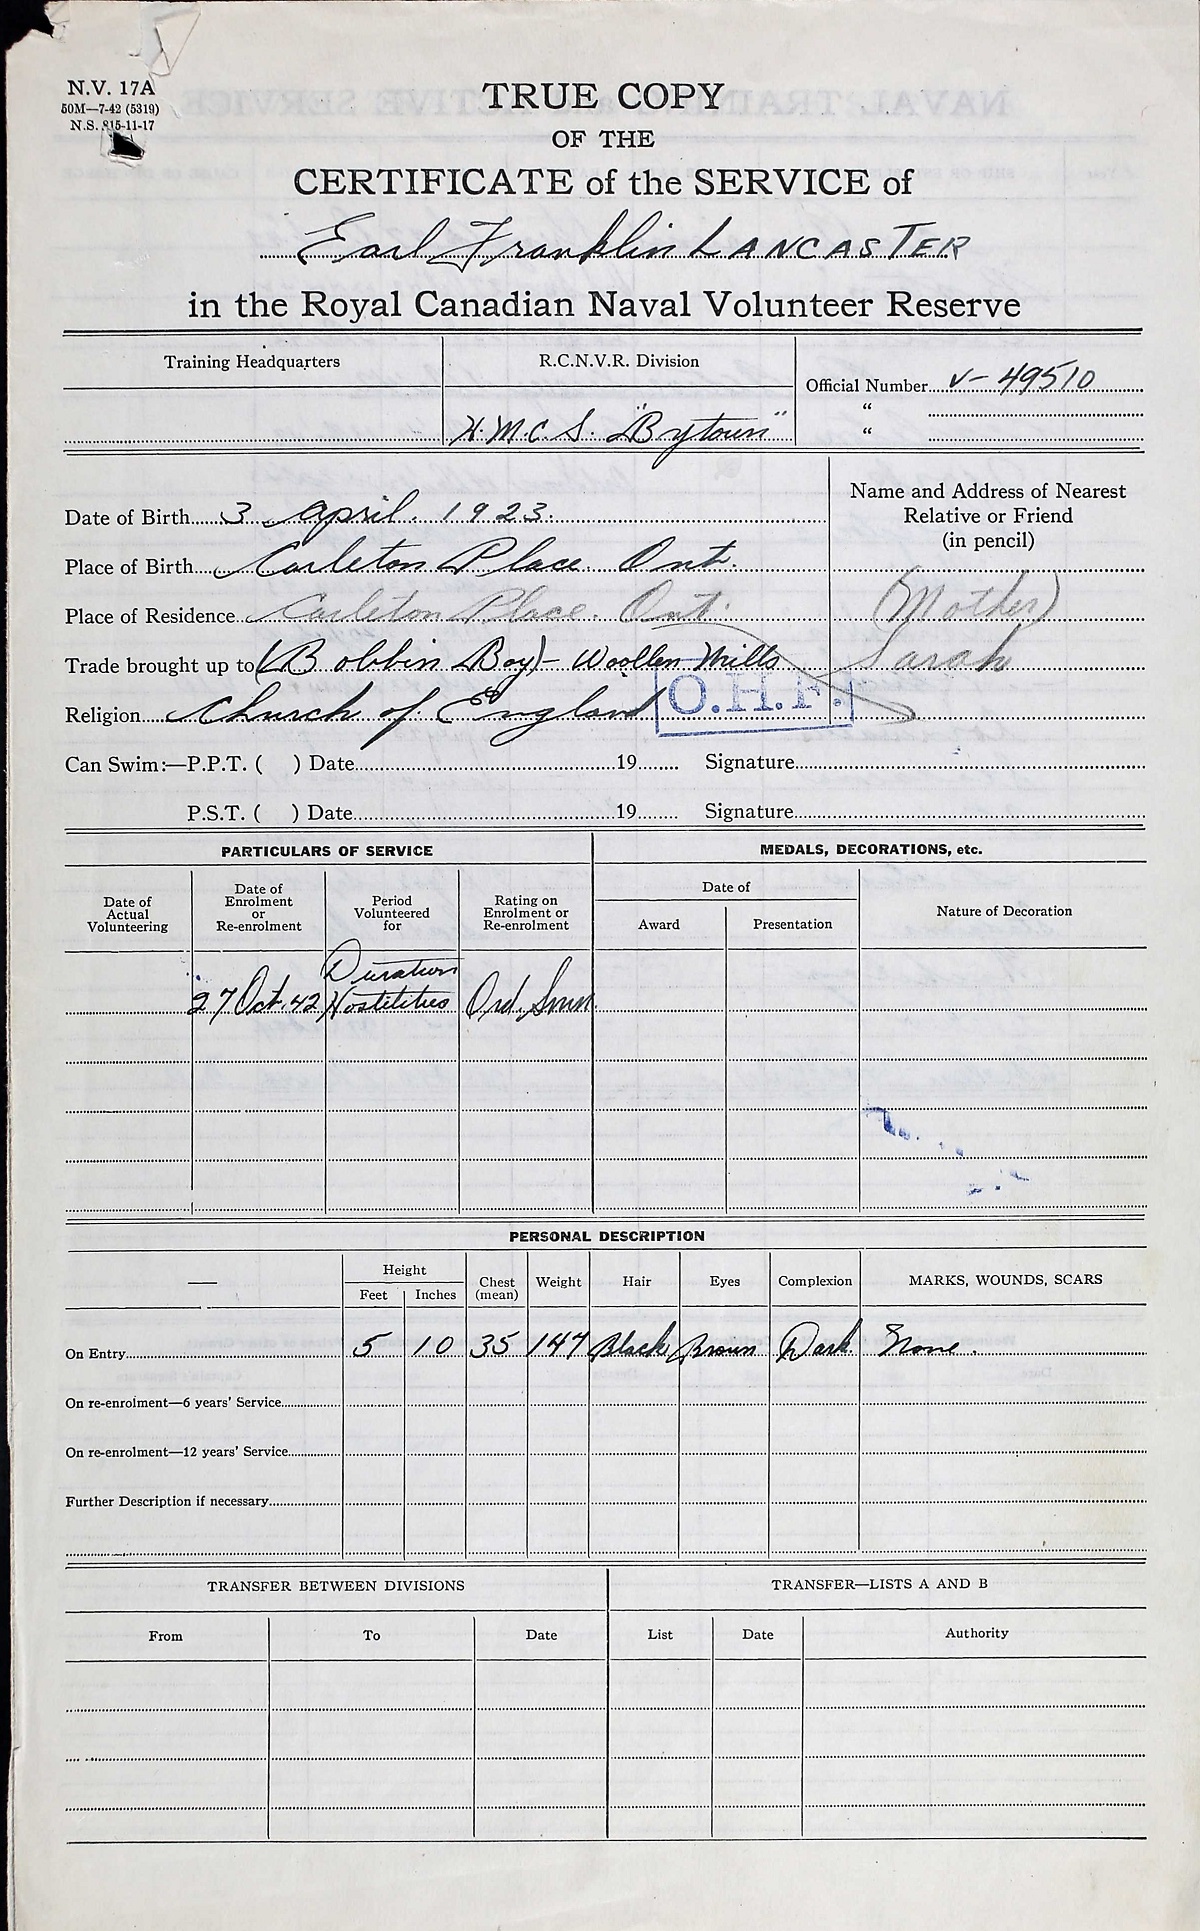 N.V. 17A
50M—7-42 (5319)
N.S. 815-11-17
TRUE COPY
OF THE
CERTIFICATE of the SERVICE of
Earl Franklin LANCASTER
in the Royal Canadian Naval Volunteer Reserve
Training Headquarters
R.C.N.V.R. Division
H.M.C.S. "Bytown"
Official Number V-49510
“
“
Date of Birth 3 April. 1923.
Place of Birth Carleton Place. Ont.
Place of Residence Carleton Place. Ont.
Trade brought up to (Bobbin Boy) - Woollen Mills
Religion Church of England
O.H.F.
Name and Address of Nearest
Relative or Friend
(in pencil)
(Mother)
Sarah
Can Swim:—P.P.T. ( ) Date 19 Signature
P.S.T. ( ) Date 19 Signature
PARTICULARS OF SERVICE
Date of Actual Volunteering
Date of Enrolment or Re-enrolment
Period Volunteered for
Rating on Enrolment or Re-enrolment
27 Oct. 42 Duration Hostilities Ord. Smn.
MEDALS, DECORATIONS, etc.
Date of
Award Presentation
Nature of Decoration
PERSONAL DESCRIPTION
— Height Chest (mean) Weight Hair Eyes Complexion MARKS, WOUNDS, SCARS
Feet Inches
On Entry 5 10 35 147 Black Brown Dark None.
On re-enrolment—6 years' Service
On re-enrolment—12 years' Service
Further Description if necessary
TRANSFER BETWEEN DIVISIONS
From To Date
TRANSFER—LISTS A AND B
List Date Authority